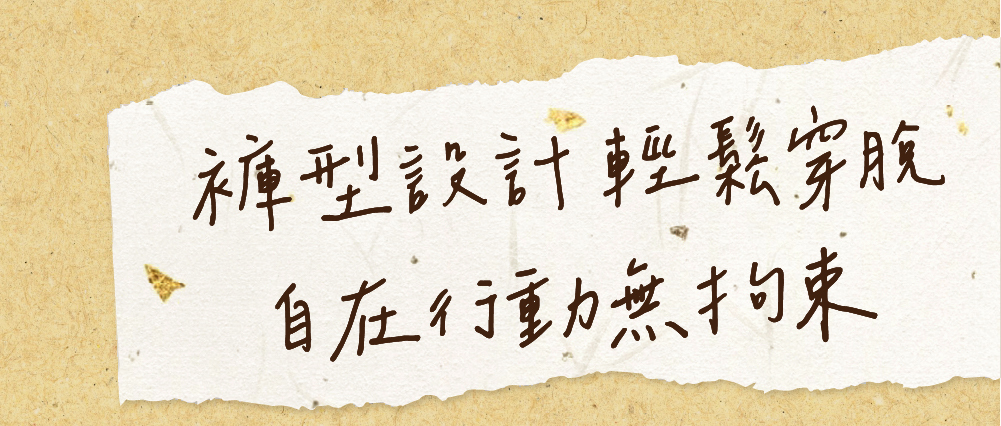 褲型設計輕鬆穿脫
自在行動無拘束